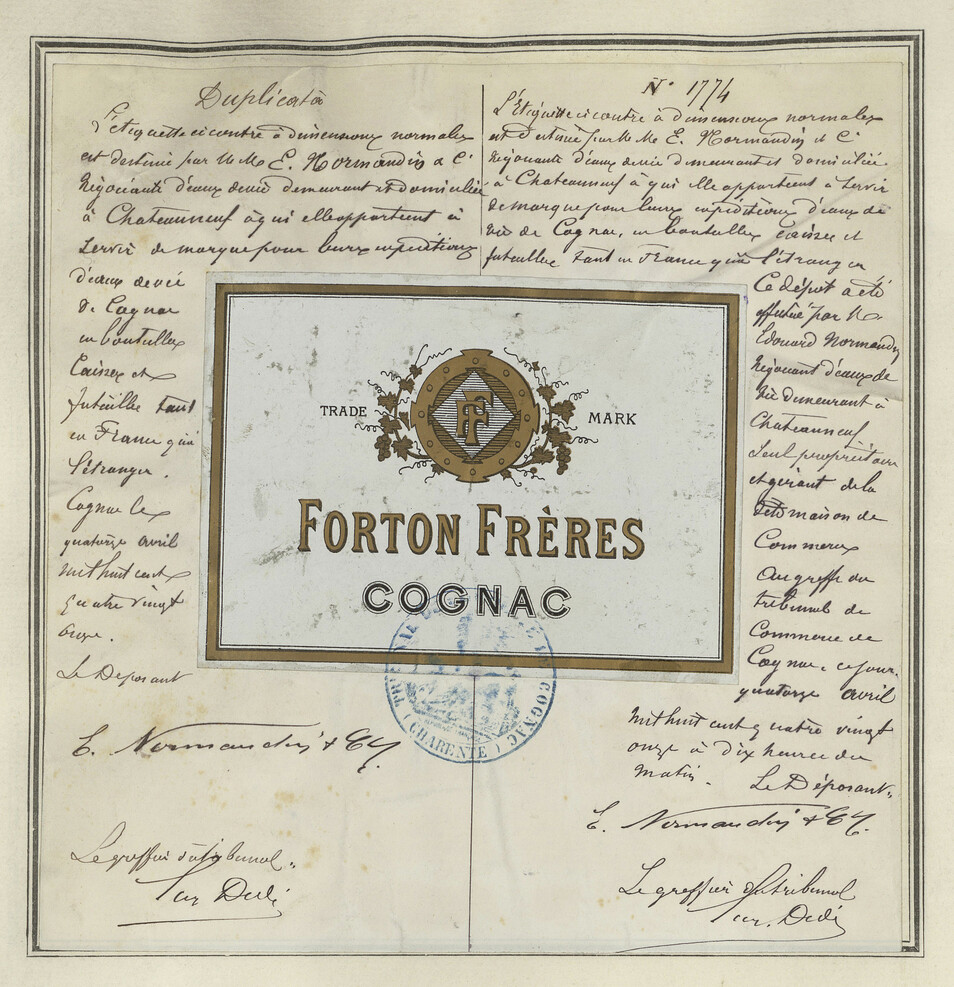 Duplicata
L'étiquette ci contre à dimensions normales
est destiné par M Me E. Normandin & Cie
Négociants d'eaux de vie demeurant et domiciliés
à Chateauneuf à qui elle appartient à
servir de marque pour leurs expéditions
d'eaux de vie
de Cognac
en bouteilles
Caisses et
futailles tant
en France qu'à
l'étranger.
Cognac le
quatorze avril
mil huit cent
quatre vingt
onze.
Le Déposant
E. Normandin & Cy.
Le greffier du tribunal
N° 1774
L'Etiquette ci contre à dimensions normales
est destiné par M Me E. Normandin et Cie
Négociants d'eaux de vie demeurant et domiciliés
à Chateauneuf à qui elle appartient à servir
de marque pour leurs expéditions d'eaux de
vie de Cognac, en bouteilles caisses et
futailles tant en France qu'à l'étranger
Ce dépôt a été
effectué par M.
Edouard Normandin
Négociant d'eaux de
vie demeurant à
Chateauneuf
seul propriétaire
et gérant de la
dite maison de
Commerce
Au greffe du
tribunal de
Commerce de
Cognac, ce jour
quatorze avril
mil huit cent quatre vingt
onze à dix heures du
matin.
Le Déposant
E. Normandin & Cy.
Le greffier du tribunal
TRADE MARK
FF
FORTON FRÈRES
COGNAC
COGNAC (CHARENTE)